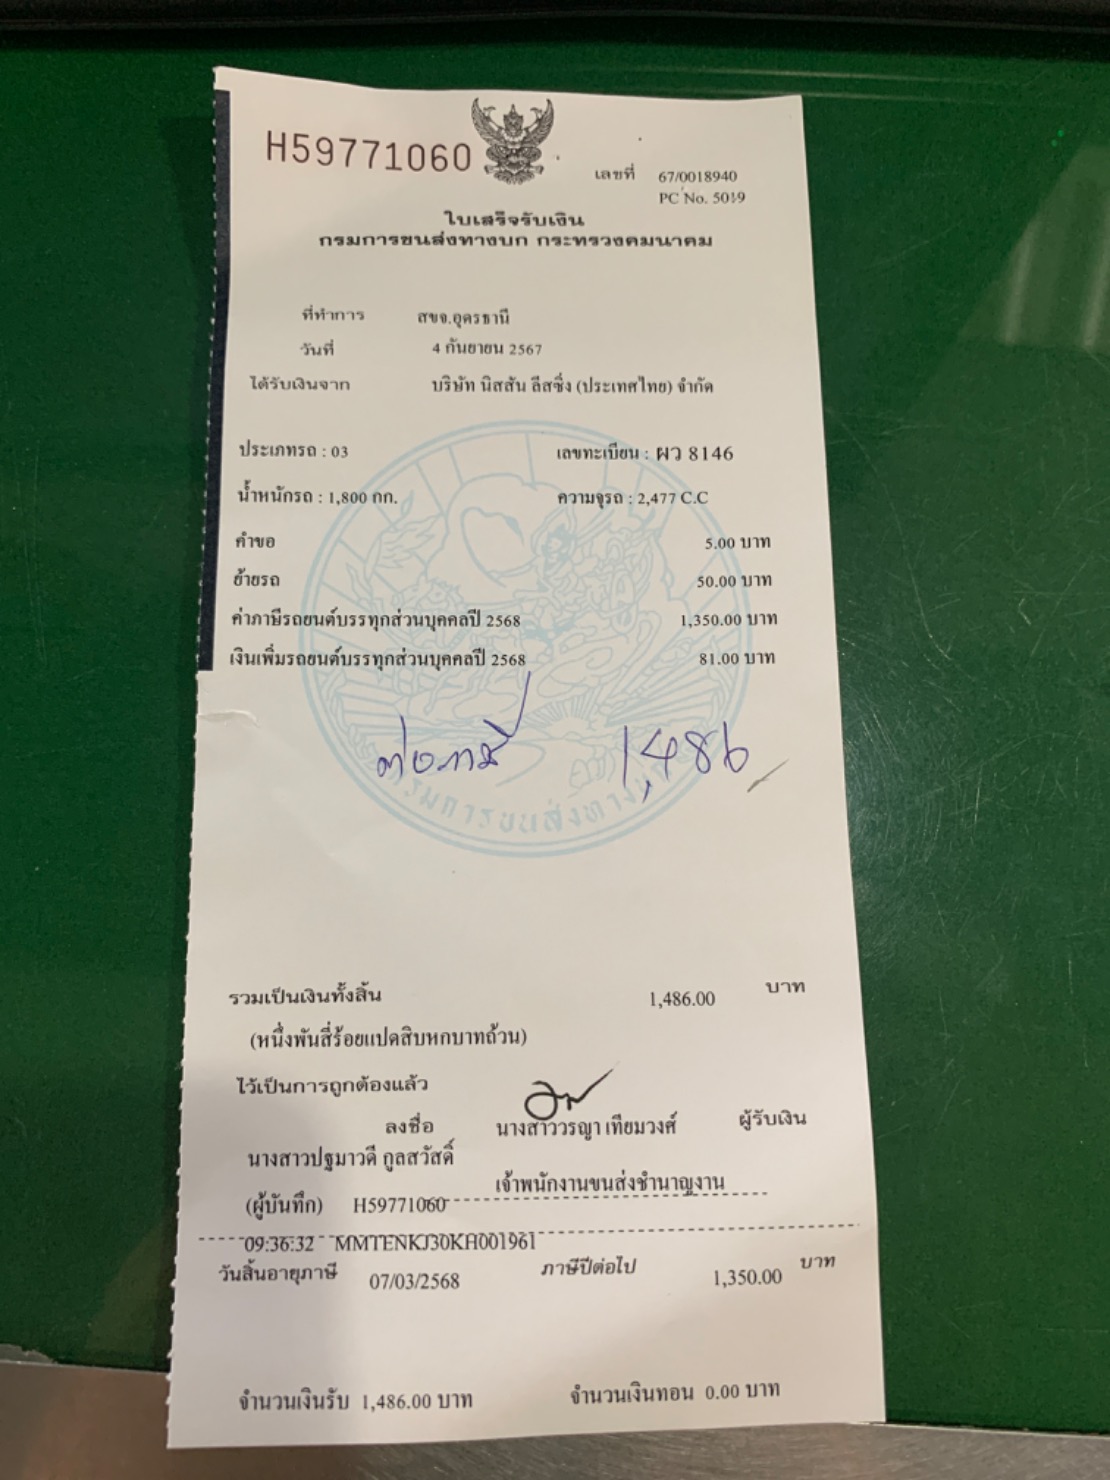 H59771060
เลขที่ 67/0018940
PC No. 5019
ใบเสร็จรับเงิน
กรมการขนส่งทางบก กระทรวงคมนาคม
ที่ทำการ สขจ.อุดรธานี
วันที่ 4 กันยายน 2567
ได้รับเงินจาก บริษัท นิสสัน ลีสซิ่ง (ประเทศไทย) จำกัด
ประเภทรถ : 03 เลขทะเบียน : ผว 8146
น้ำหนักรถ : 1,800 กก. ความจุรถ : 2,477 C.C
คำขอ 5.00 บาท
ย้ายรถ 50.00 บาท
ค่าภาษีรถยนต์บรรทุกส่วนบุคคลปี 2568 1,350.00 บาท
เงินเพิ่มรถยนต์บรรทุกส่วนบุคคลปี 2568 81.00 บาท
ต่อภาษี 1,486
กรมการขนส่งทางบก
รวมเป็นเงินทั้งสิ้น 1,486.00 บาท
(หนึ่งพันสี่ร้อยแปดสิบหกบาทถ้วน)
ไว้เป็นการถูกต้องแล้ว
ลงชื่อ นางสาววรญา เทียมวงศ์ ผู้รับเงิน
นางสาวปฐมาวดี กูลสวัสดิ์
เจ้าพนักงานขนส่งชำนาญงาน
(ผู้บันทึก) H59771060
09:36:32 MMTENKJ30KA001961
วันสิ้นอายุภาษี 07/03/2568 ภาษีปีต่อไป 1,350.00 บาท
จำนวนเงินรับ 1,486.00 บาท จำนวนเงินทอน 0.00 บาท